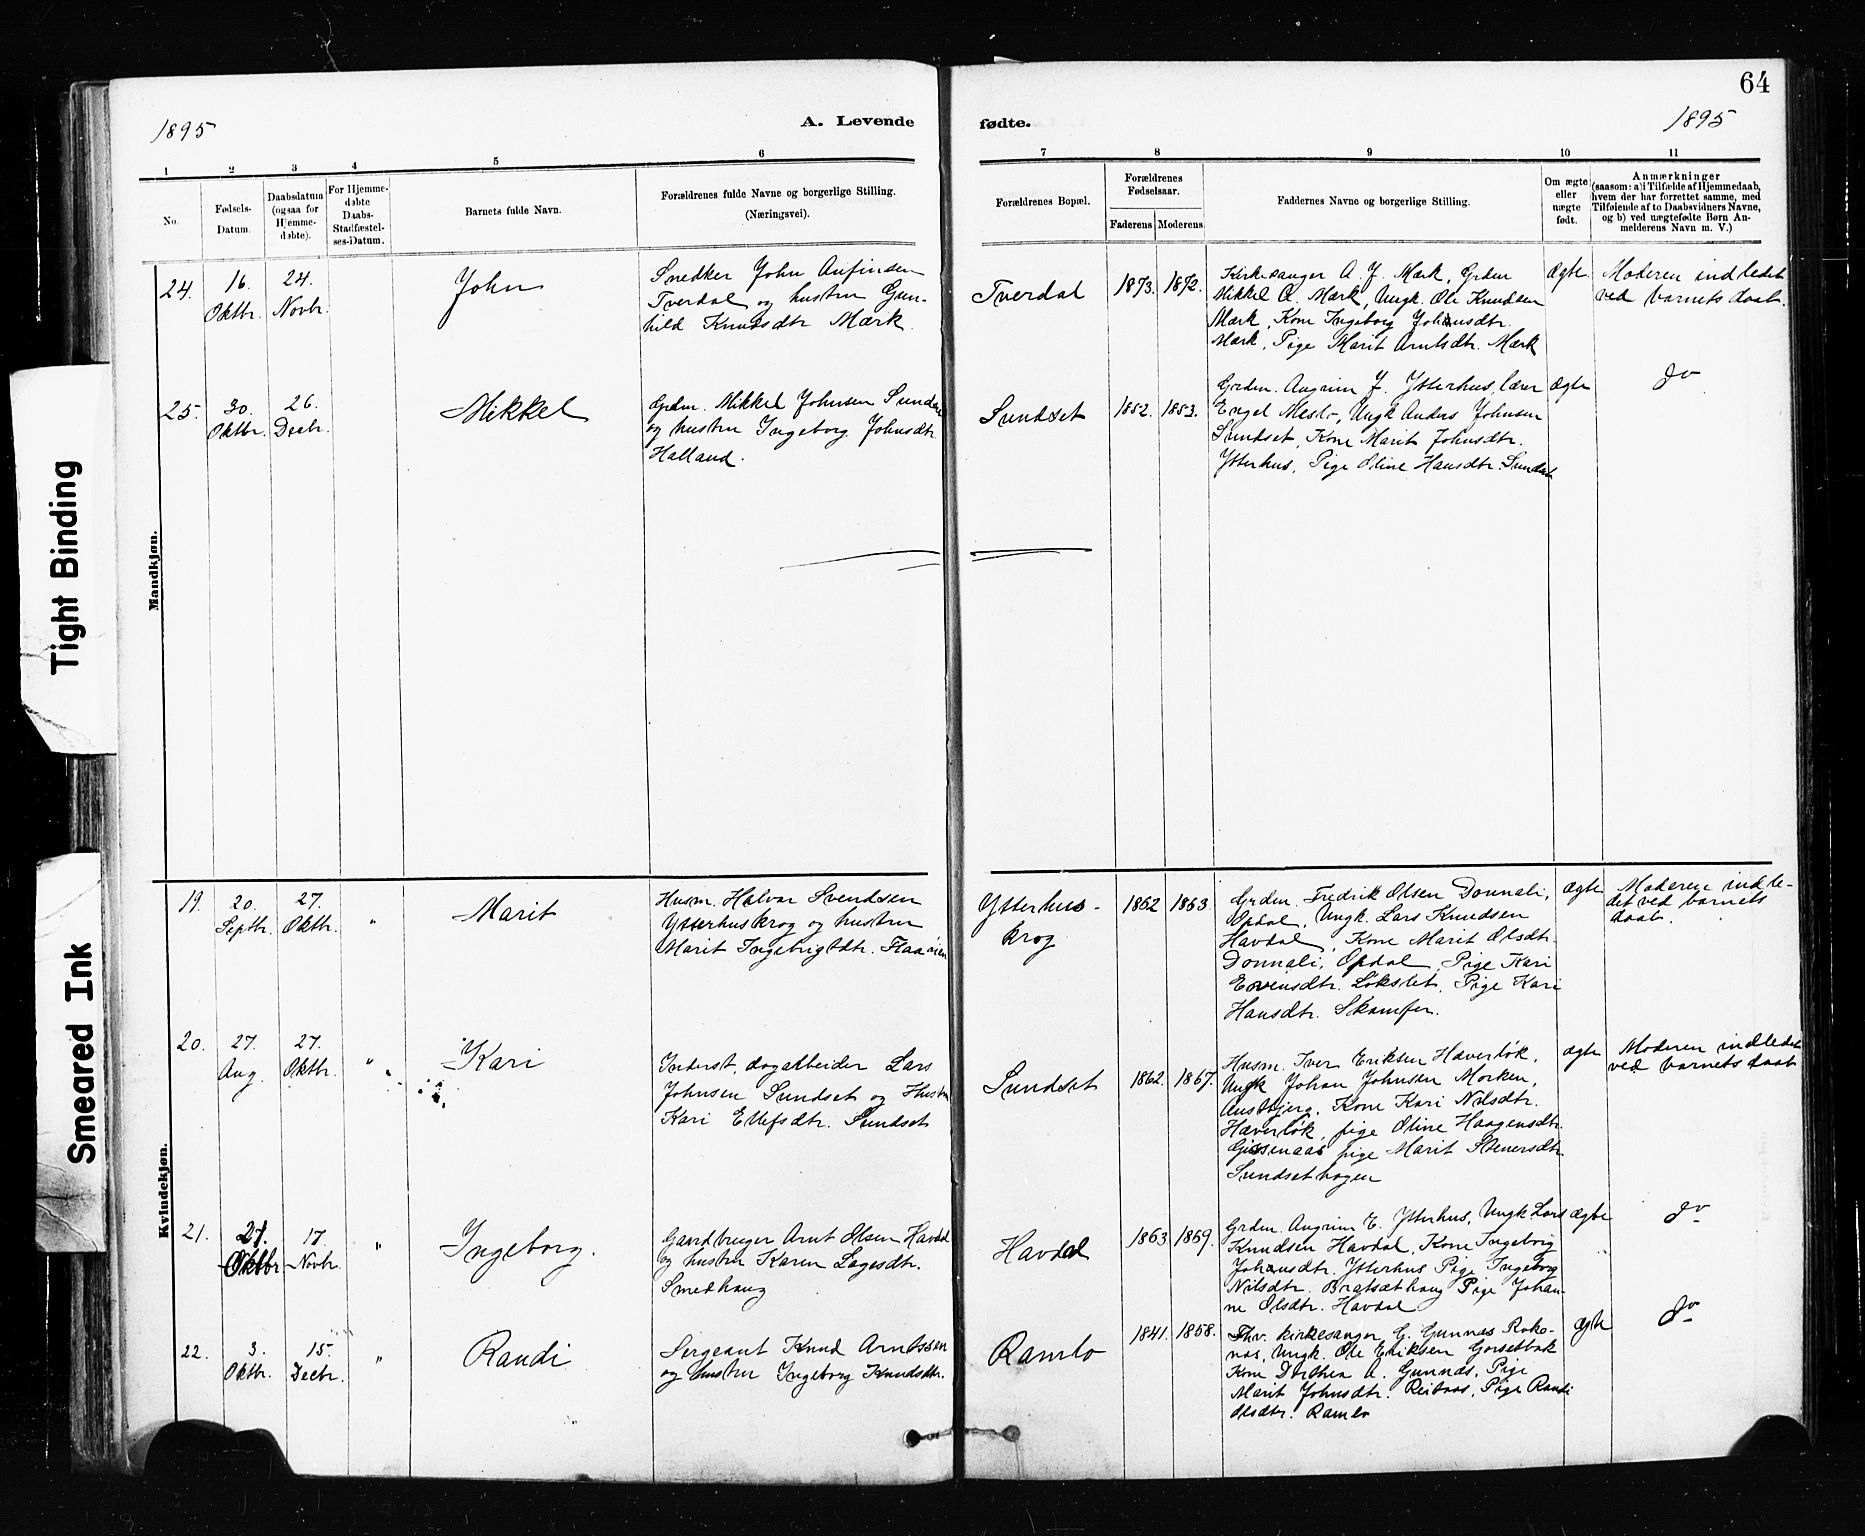 64
1895
A. Levende
fødte.
1895
1
2
3
4
5
6
7
8
9
10
11
No.
Fødsels-
Datum.
Daabsdatum
(ogsaa for
Hjemme-
døbte).
For Hjemme-
døbte
Daabs-
Stadfæstel-
ses-Datum.
Barnets fulde Navn.
Forældrenes fulde Navne og borgerlige Stilling.
(Næringsvei).
Forældrenes Bopæl.
Forældrenes
Fødselsaar.
Faderens
Moderens
Faddernes Navne og borgerlige Stilling.
Om ægte
eller
uægte
født.
Anmærkninger
(saasom: a) i Tilfælde af Hjemmedaab,
hvem der har forrettet samme, med
Tilføiende af to Daabsvidners Navne,
og b) ved uægtefødte Børn An-
melderens Navn m. V.)
Mandkjøn.
24.
16.
Oktbr.
24.
Novbr.
John
Snedker John Anfinsen
Tverdal og hustru Gun-
hild Knudsdtr Mærk.
Tverdal
1873.
1872.
Kirkesanger A. J. Mærk, Grdm
Mikkel A. Mærk, Ungk. Ole Knudsen
Mærk, Kone Ingeborg Johnsdtr.
Mærk, Pige Marit Arntsdtr. Mærk
Ægte
Moderen indledet
ved barnets daab.
25.
30.
Oktbr.
26.
Decbr.
Mikkel
Grdm. Mikkel Johnsen Sundset
og hustru Ingeborg Johnsdtr
Halland.
Sundset
1852.
1853.
Grdm. Angrim J. Ytterhus, lærer
Engel Meslo, Ungk Anders Johnsen
Sundset, Kone Marit Johnsdtr.
Ytterhus, Pige Oline Hansdtr. Sundset
ægte
Do
Kvindekjøn.
19.
20.
Septbr.
27.
Oktbr.
"
Marit
Husm. Halvor Svendsen
Ytterhuskrog og hustru
Marit Ingebrigtdtr.
Ytterhus-
krog
1862
1863
Grdm. Fredrik Olsen Donnali,
Opdal, Ungk. Lars Knudsen
Havdal, Kone Marit Olsdtr.
Donnali, Opdal, Pige Kari
Løkslet, Pige Kari
Hansdtr. Skamfer.
ægte
Moderen indle-
det ved barnets
daab.
20.
27.
Aug.
27.
Oktbr.
"
Kari
Inderst, dagarbeider Lars
Johnsen Sundset og Hustru
Kari Ellefsdtr. Sundset
Sundset
1862.
1867.
Husm. Iver Eriksen Hæverløk,
Ungk Johan Johnsen Morken,
Austbjerg, Kone Kari Nilsdtr.
Hæverløk, pige Oline Haagensdtr.
Gissenaas pige Marit Stenersdtr
Sundsethagen
ægte
Moderen indledet
ved barnets daab
21.
27.
Oktbr
17.
Novbr.
"
Ingeborg.
Gaardbruger Arnt Olsen Havdal
og hustru Karen Lagesdtr.
Smedhaug
Havdal
1863
1869.
Grdm. Angrim E. Ytterhus, Ungk. Lars
Knudsen Havdal, Kone Ingeborg
Johnsdtr. Ytterhus Pige Ingeborg
Nilsdtr. Bratsethaug Pige Johan-
ne Olsdtr. Havdal
ægte
Do
22.
3.
Oktbr.
15.
Decbr.
"
Randi
Sergeant Knud Arntssen
og hustru Ingeborg Knudsdtr.
Ramlo
1841.
1858.
Fhv. kirkesanger G. Gunnes Roko-
nos, Ungk. Ole Eriksen Gorsetbak
Kone Dorthea A. Gunnes, Pige
Marit Johnsdtr. Reitaas, Pige Randi
Olsdtr. Ramlo
ægte
Do
Tight Binding
Smeared Ink